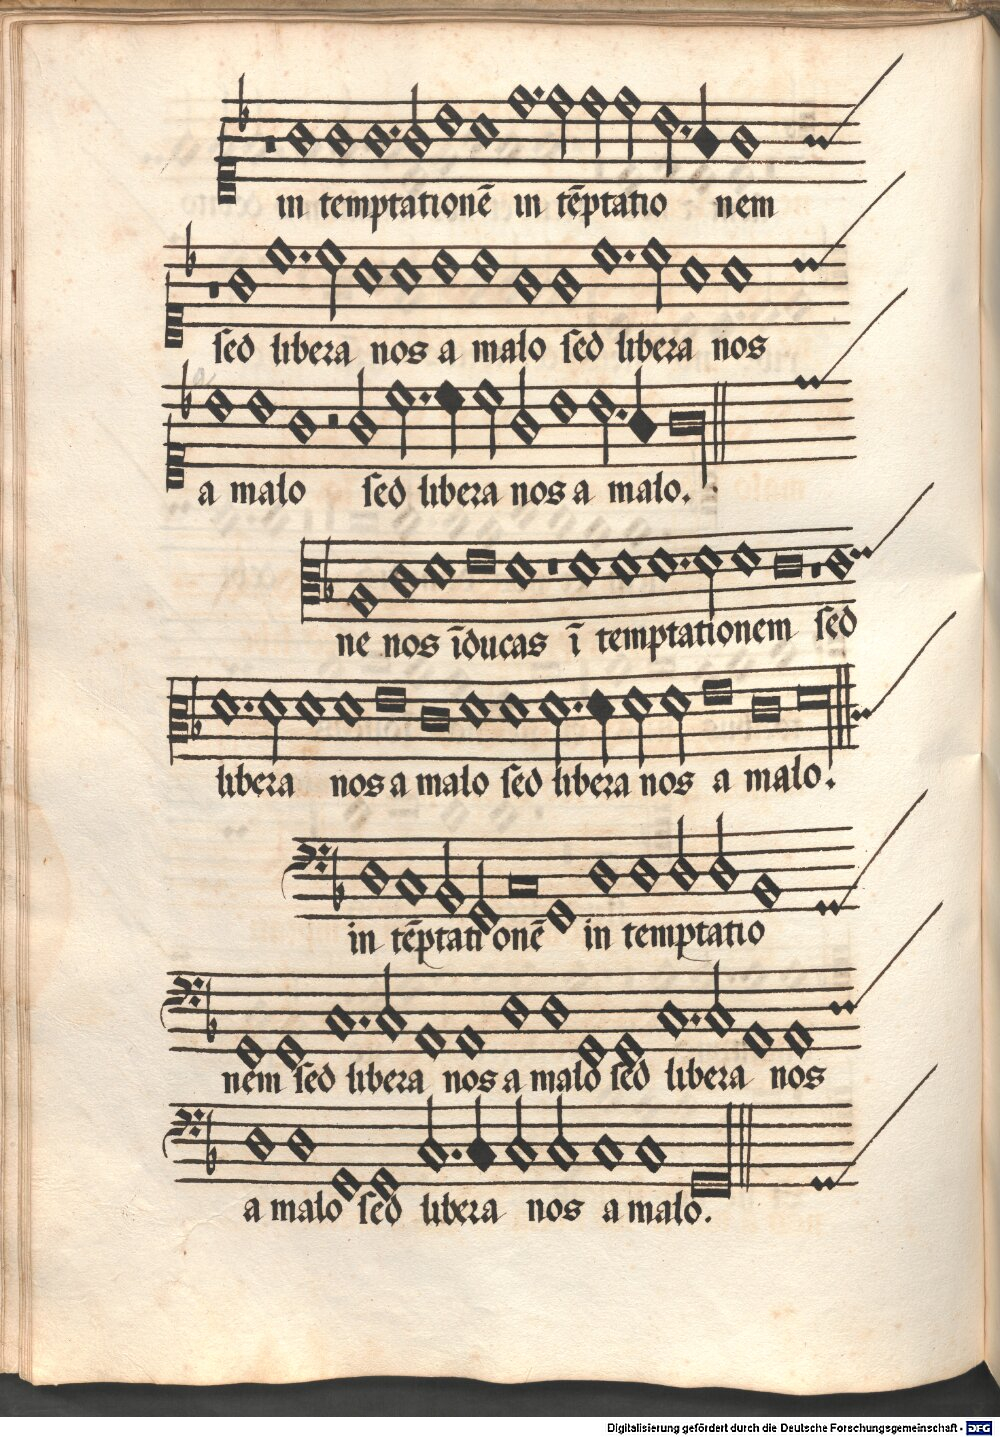 in temptationē in tēptatio nem
sed libera nos a malo sed libera nos
a malo sed libera nos a malo.
ne nos īducas ī temptationem sed
libera nos a malo sed libera nos a malo.
in tēptationē in temptatio
nem sed libera nos a malo sed libera nos
a malo sed libera nos a malo.
Digitalisierung gefördert durch die Deutsche Forschungsgemeinschaft - DFG